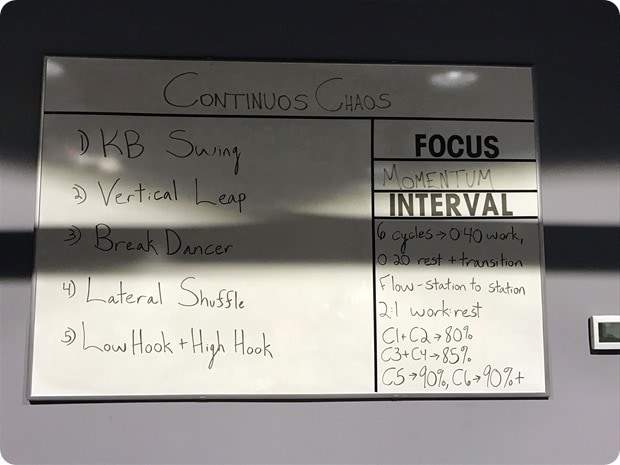 CONTINUOS CHAOS
1) KB Swing
2) Vertical Leap
3) Break Dancer
4) Lateral Shuffle
5) Low Hook + High Hook
FOCUS
MOMENTUM
INTERVAL
6 cycles → 0:40 work,
0:20 rest + transition
Flow - station to station
2:1 work:rest
C1+C2 → 80%
C3+C4 → 85%
C5 → 90%, C6 → 90%+